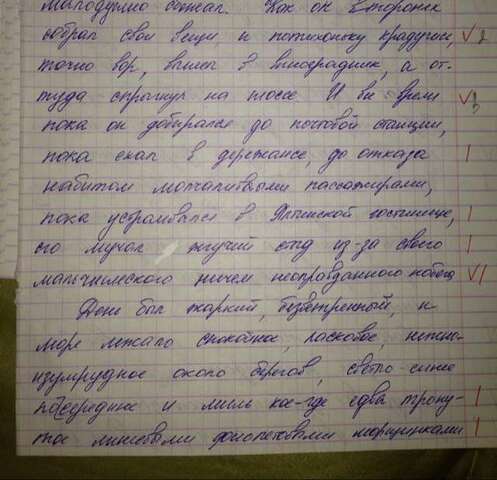 малодушно сбежал. Как он второпях
собрал свои вещи и потихоньку крадучись,
точно вор, вылез в виноградник, а от-
туда спрыгнул на шоссе. И вы время
пока он добирался до почтовой станции,
пока ехал в дережансе, до отказа
набитом молчаливыми пассажирами,
пока устраивался в Ялтинской гостинице,
его мучал жгучий стыд из-за своего
мальчишеского ничем неоправданного побега
День был жаркий, безветренный, и
море лежало спокойное, ласковое, нежно-
изумрудное около берегов, светло-синие
посередине и лишь кое-где едва трону-
тое лиловыми фиолетовыми морщинками